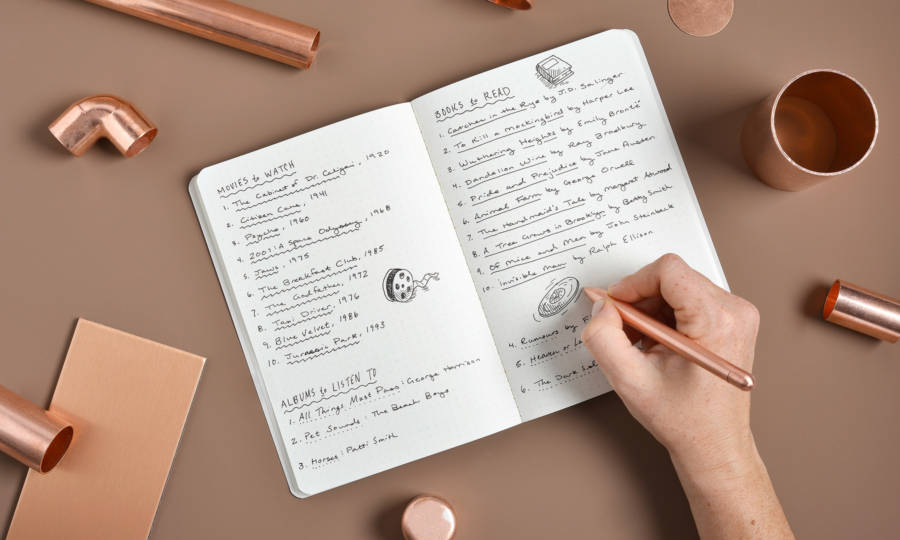 MOVIES to WATCH
1. The Cabinet of Dr. Caligari, 1920
2. Citizen Cane, 1941
3. Psycho, 1960
4. 2001: A Space Odyssey, 1968
5. Jaws, 1975
6. The Breakfast Club, 1985
7. The Godfather, 1972
8. Taxi Driver, 1976
9. Blue Velvet, 1986
10. Jurassic Park, 1993
ALBUMS to LISTEN TO
1. All Things Must Pass: George Harrison
2. Pet Sounds: The Beach Boys
3. Horses: Patti Smith
BOOKS to READ
1. Catcher in the Rye by J.D. Salinger
2. To Kill a mockingbird by Harper Lee
3. Wuthering Heights by Emily Brontë
4. Dandelion Wine by Ray Bradbury
5. Pride and Prejudice by Jane Austen
6. Animal Farm by George Orwell
7. The Handmaid's Tale by Margaret Atwood
8. A Tree Grows in Brooklyn by Betty Smith
9. Of Mice and Men by John Steinbeck
10. Invisible Man by Ralph Ellison
4. Rumours by F
5. Heaven or La
6. The Dark